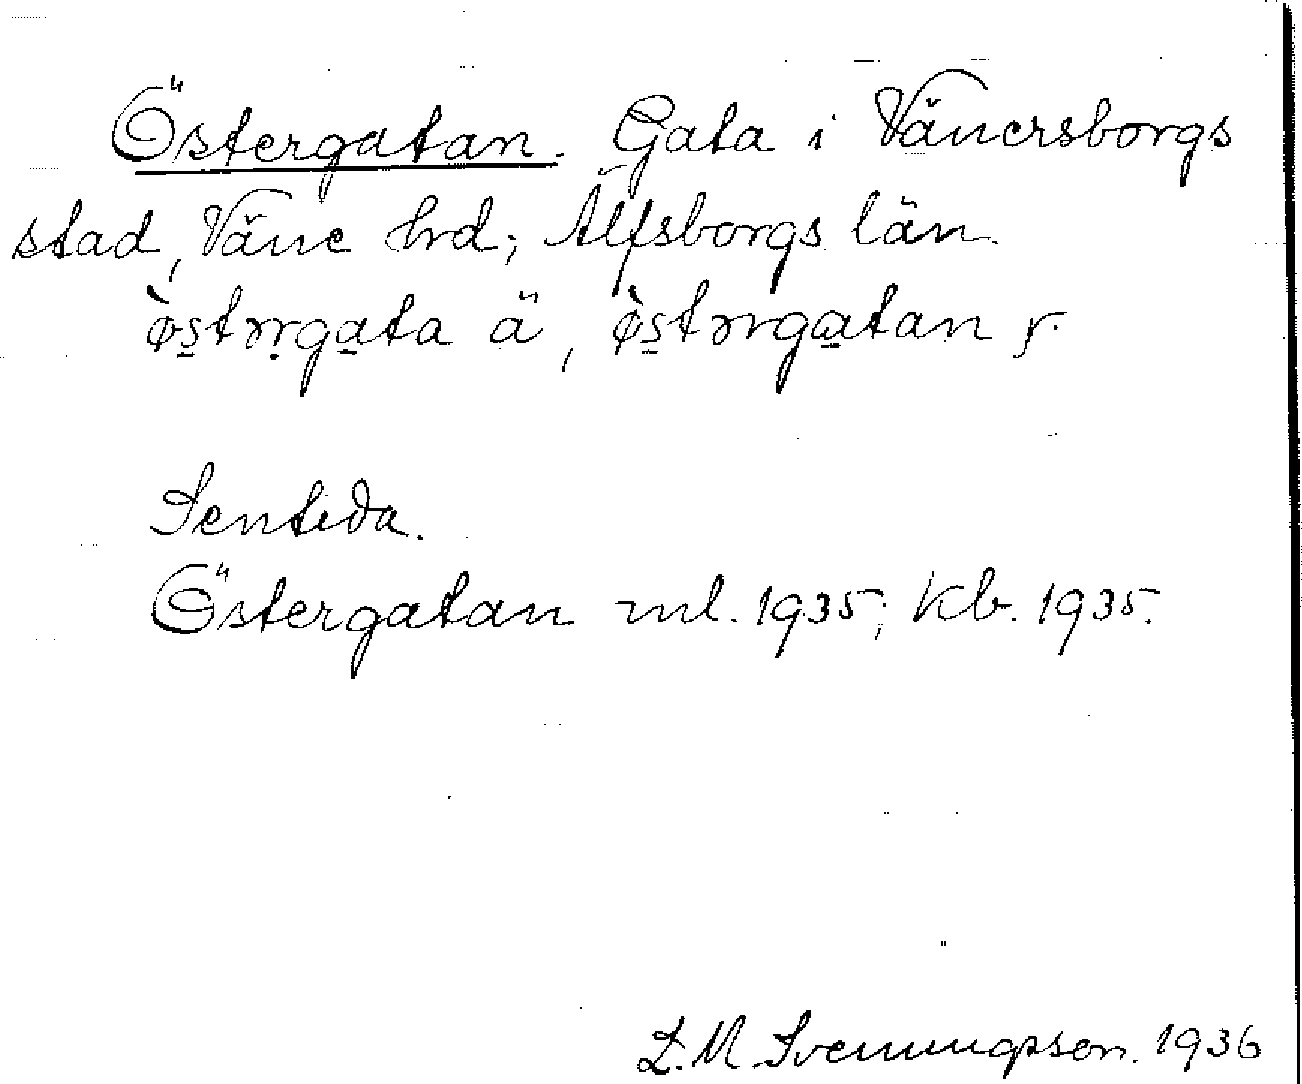 Östergatan. Gata i Vänersborgs
stad, Väne hrd; Älfsborgs län.
ø̀s̱tr̩ga̱ta ä, ø̀s̱tərga̱tan y.
Sentida.
Östergatan ml. 1935; Kb. 1935.
L. M. Svenungsson. 1936